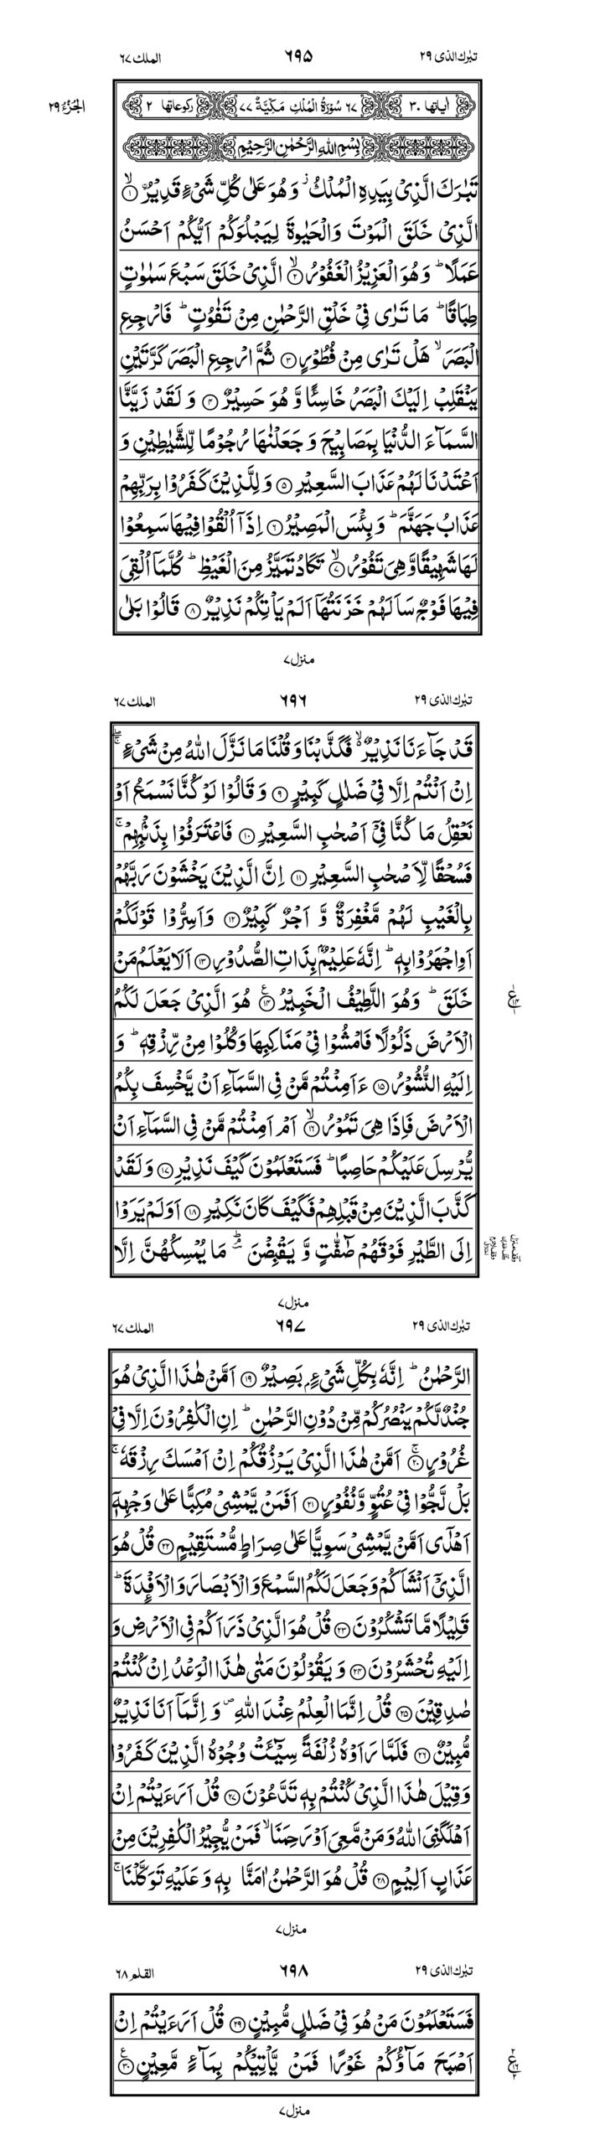 تبٰرك الذی ٢٩ ٦٩٥ الملك ٦٧
اٰیاتها ٣٠ ٦٧ سُوْرَةُ الْمُلْكِ مَكِّیَّةٌ ٧٧ رکوعاتها ٢ الجزء ٢٩
بِسْمِ اللّٰهِ الرَّحْمٰنِ الرَّحِیْمِ
تَبٰرَكَ الَّذِیْ بِیَدِهِ الْمُلْكُ ز وَ هُوَ عَلٰی كُلِّ شَیْءٍ قَدِیْرُۨ ۙ﴿١﴾
الَّذِیْ خَلَقَ الْمَوْتَ وَ الْحَیٰوةَ لِیَبْلُوَكُمْ اَیُّكُمْ اَحْسَنُ
عَمَلًا ؕ وَ هُوَ الْعَزِیْزُ الْغَفُوْرُ ۙ﴿٢﴾ الَّذِیْ خَلَقَ سَبْعَ سَمٰوٰتٍ
طِبَاقًا ؕ مَا تَرٰی فِیْ خَلْقِ الرَّحْمٰنِ مِنْ تَفٰوُتٍ ؕ فَارْجِعِ
الْبَصَرَ ۙ هَلْ تَرٰی مِنْ فُطُوْرٍ ﴿٣﴾ ثُمَّ ارْجِعِ الْبَصَرَ كَرَّتَیْنِ
یَنْقَلِبْ اِلَیْكَ الْبَصَرُ خَاسِئًا وَّ هُوَ حَسِیْرٌ ﴿٤﴾ وَ لَقَدْ زَیَّنَّا
السَّمَآءَ الدُّنْیَا بِمَصَابِیْحَ وَ جَعَلْنٰهَا رُجُوْمًا لِّلشَّیٰطِیْنِ وَ
اَعْتَدْنَا لَهُمْ عَذَابَ السَّعِیْرِ ﴿٥﴾ وَ لِلَّذِیْنَ كَفَرُوْا بِرَبِّهِمْ
عَذَابُ جَهَنَّمَ ؕ وَ بِئْسَ الْمَصِیْرُ ﴿٦﴾ اِذَاۤ اُلْقُوْا فِیْهَا سَمِعُوْا
لَهَا شَهِیْقًا وَّ هِیَ تَفُوْرُ ۙ﴿٧﴾ تَكَادُ تَمَیَّزُ مِنَ الْغَیْظِ ؕ كُلَّمَاۤ اُلْقِیَ
فِیْهَا فَوْجٌ سَاَلَهُمْ خَزَنَتُهَاۤ اَلَمْ یَاْتِكُمْ نَذِیْرٌ ﴿٨﴾ قَالُوْا بَلٰی
منزل ٧
تبٰرك الذی ٢٩ ٦٩٦ الملك ٦٧
قَدْ جَآءَنَا نَذِیْرٌ ۙ۬ فَكَذَّبْنَا وَ قُلْنَا مَا نَزَّلَ اللّٰهُ مِنْ شَیْءٍ
اِنْ اَنْتُمْ اِلَّا فِیْ ضَلٰلٍ كَبِیْرٍ ﴿٩﴾ وَ قَالُوْا لَوْ كُنَّا نَسْمَعُ اَوْ
نَعْقِلُ مَا كُنَّا فِیْۤ اَصْحٰبِ السَّعِیْرِ ﴿١٠﴾ فَاعْتَرَفُوْا بِذَنْۢبِهِمْ ۚ
فَسُحْقًا لِّاَصْحٰبِ السَّعِیْرِ ﴿١١﴾ اِنَّ الَّذِیْنَ یَخْشَوْنَ رَبَّهُمْ
بِالْغَیْبِ لَهُمْ مَّغْفِرَةٌ وَّ اَجْرٌ كَبِیْرٌ ﴿١٢﴾ وَ اَسِرُّوْا قَوْلَكُمْ
اَوِ اجْهَرُوْا بِهٖ ؕ اِنَّهٗ عَلِیْمٌۢ بِذَاتِ الصُّدُوْرِ ﴿١٣﴾ اَلَا یَعْلَمُ مَنْ
خَلَقَ ؕ وَ هُوَ اللَّطِیْفُ الْخَبِیْرُ ﴿١٤﴾ هُوَ الَّذِیْ جَعَلَ لَكُمُ
الْاَرْضَ ذَلُوْلًا فَامْشُوْا فِیْ مَنَاكِبِهَا وَ كُلُوْا مِنْ رِّزْقِهٖ ؕ وَ
اِلَیْهِ النُّشُوْرُ ﴿١٥﴾ ءَاَمِنْتُمْ مَّنْ فِی السَّمَآءِ اَنْ یَّخْسِفَ بِكُمُ
الْاَرْضَ فَاِذَا هِیَ تَمُوْرُ ۙ﴿١٦﴾ اَمْ اَمِنْتُمْ مَّنْ فِی السَّمَآءِ اَنْ
یُّرْسِلَ عَلَیْكُمْ حَاصِبًا ؕ فَسَتَعْلَمُوْنَ كَیْفَ نَذِیْرِ ﴿١٧﴾ وَ لَقَدْ
كَذَّبَ الَّذِیْنَ مِنْ قَبْلِهِمْ فَكَیْفَ كَانَ نَكِیْرِ ﴿١٨﴾ اَوَلَمْ یَرَوْا
اِلَی الطَّیْرِ فَوْقَهُمْ صٰٓفّٰتٍ وَّ یَقْبِضْنَ مَا یُمْسِكُهُنَّ اِلَّا
منزل ٧
تبٰرك الذی ٢٩ ٦٩٧ الملك ٦٧
الرَّحْمٰنُ ؕ اِنَّهٗ بِكُلِّ شَیْءٍۭ بَصِیْرٌ ﴿١٩﴾ اَمَّنْ هٰذَا الَّذِیْ هُوَ
جُنْدٌ لَّكُمْ یَنْصُرُكُمْ مِّنْ دُوْنِ الرَّحْمٰنِ ؕ اِنِ الْكٰفِرُوْنَ اِلَّا فِیْ
غُرُوْرٍ ۚ﴿٢٠﴾ اَمَّنْ هٰذَا الَّذِیْ یَرْزُقُكُمْ اِنْ اَمْسَكَ رِزْقَهٗ ۚ
بَلْ لَّجُّوْا فِیْ عُتُوٍّ وَّ نُفُوْرٍ ﴿٢١﴾ اَفَمَنْ یَّمْشِیْ مُكِبًّا عَلٰی وَجْهِهٖۤ
اَهْدٰۤی اَمَّنْ یَّمْشِیْ سَوِیًّا عَلٰی صِرَاطٍ مُّسْتَقِیْمٍ ﴿٢٢﴾ قُلْ هُوَ
الَّذِیْۤ اَنْشَاَكُمْ وَ جَعَلَ لَكُمُ السَّمْعَ وَ الْاَبْصَارَ وَ الْاَفْـِٕدَةَ ؕ
قَلِیْلًا مَّا تَشْكُرُوْنَ ﴿٢٣﴾ قُلْ هُوَ الَّذِیْ ذَرَاَكُمْ فِی الْاَرْضِ وَ
اِلَیْهِ تُحْشَرُوْنَ ﴿٢٤﴾ وَ یَقُوْلُوْنَ مَتٰی هٰذَا الْوَعْدُ اِنْ كُنْتُمْ
صٰدِقِیْنَ ﴿٢٥﴾ قُلْ اِنَّمَا الْعِلْمُ عِنْدَ اللّٰهِ ۪ وَ اِنَّمَاۤ اَنَا نَذِیْرٌ
مُّبِیْنٌ ﴿٢٦﴾ فَلَمَّا رَاَوْهُ زُلْفَةً سِیْٓـَٔتْ وُجُوْهُ الَّذِیْنَ كَفَرُوْا
وَ قِیْلَ هٰذَا الَّذِیْ كُنْتُمْ بِهٖ تَدَّعُوْنَ ﴿٢٧﴾ قُلْ اَرَءَیْتُمْ اِنْ
اَهْلَكَنِیَ اللّٰهُ وَ مَنْ مَّعِیَ اَوْ رَحِمَنَا ۙ فَمَنْ یُّجِیْرُ الْكٰفِرِیْنَ مِنْ
عَذَابٍ اَلِیْمٍ ﴿٢٨﴾ قُلْ هُوَ الرَّحْمٰنُ اٰمَنَّا بِهٖ وَ عَلَیْهِ تَوَكَّلْنَا ۚ
منزل ٧
تبٰرك الذی ٢٩ ٦٩٨ القلم ٦٨
فَسَتَعْلَمُوْنَ مَنْ هُوَ فِیْ ضَلٰلٍ مُّبِیْنٍ ﴿٢٩﴾ قُلْ اَرَءَیْتُمْ اِنْ
اَصْبَحَ مَآؤُكُمْ غَوْرًا فَمَنْ یَّاْتِیْكُمْ بِمَآءٍ مَّعِیْنٍ ﴿٣٠﴾
منزل ٧